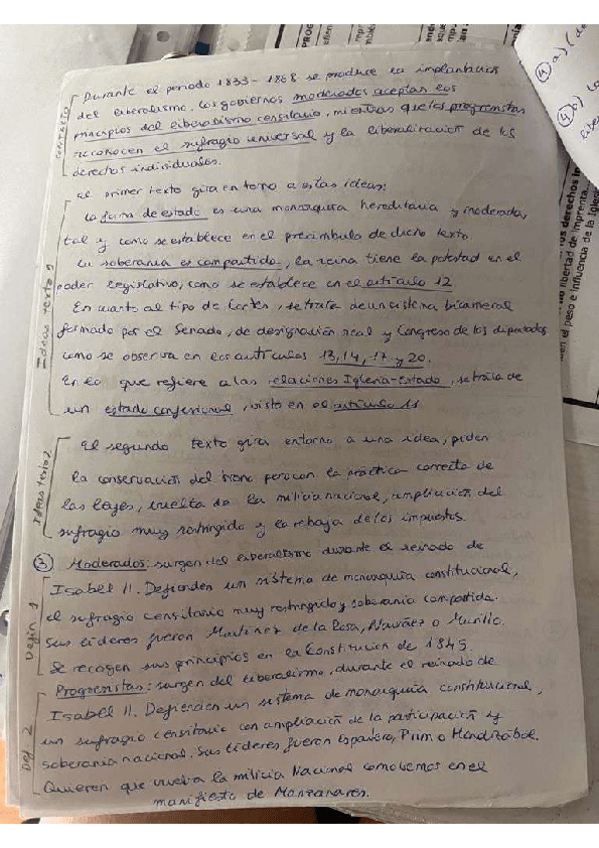 Durante el periodo 1833-1868 se produce la implantación
del liberalismo. Los gobiernos moderados aceptan los
principios del liberalismo censitario, mientras que los progresistas
reconocen el sufragio universal y la liberalización de los
derechos individuales.
El primer texto gira en torno a estas ideas:
La forma de estado es una monarquía hereditaria y moderada,
tal y como se establece en el preámbulo de dicho texto.
La soberanía es compartida, la reina tiene la potestad en el
poder legislativo, como se establece en el artículo 12
En cuanto al tipo de Cortes, se trata de un sistema bicameral
formado por el Senado, de designación real y Congreso de los diputados
como se observa en los artículos 13, 14, 17 y 20.
En lo que refiere a las relaciones Iglesia-Estado, se trata de
un estado confesional, visto en el artículo 11
El segundo texto gira entorno a una idea, piden
la conservación del trono pero con la práctica correcta de
las leyes, vuelta de la milicia nacional, ampliación del
sufragio muy restringido y la rebaja de los impuestos.
③ Moderados: surgen del liberalismo durante el reinado de
Isabel II. Defienden un sistema de monarquía constitucional,
el sufragio censitario muy restringido y soberanía compartida.
Sus líderes fueron Martínez de la Rosa, Narváez o Murillo.
Se recogen sus principios en la Constitución de 1845.
Progresistas: surgen del liberalismo, durante el reinado de
Isabel II. Defienden un sistema de monarquía constitucional,
un sufragio censitario con ampliación de la participación y
soberanía nacional. Sus líderes fueron Espartero, Prim o Mendizábal.
Quieren que vuelva la milicia Nacional como vemos en el
manifiesto de Manzanares.
contexto
Ideas texto 1
Ideas texto 2
Defin 1
Def 2
④ a)
④ b)
os derechos in
libertad de imprenta
en el peso e influencia de la Igles